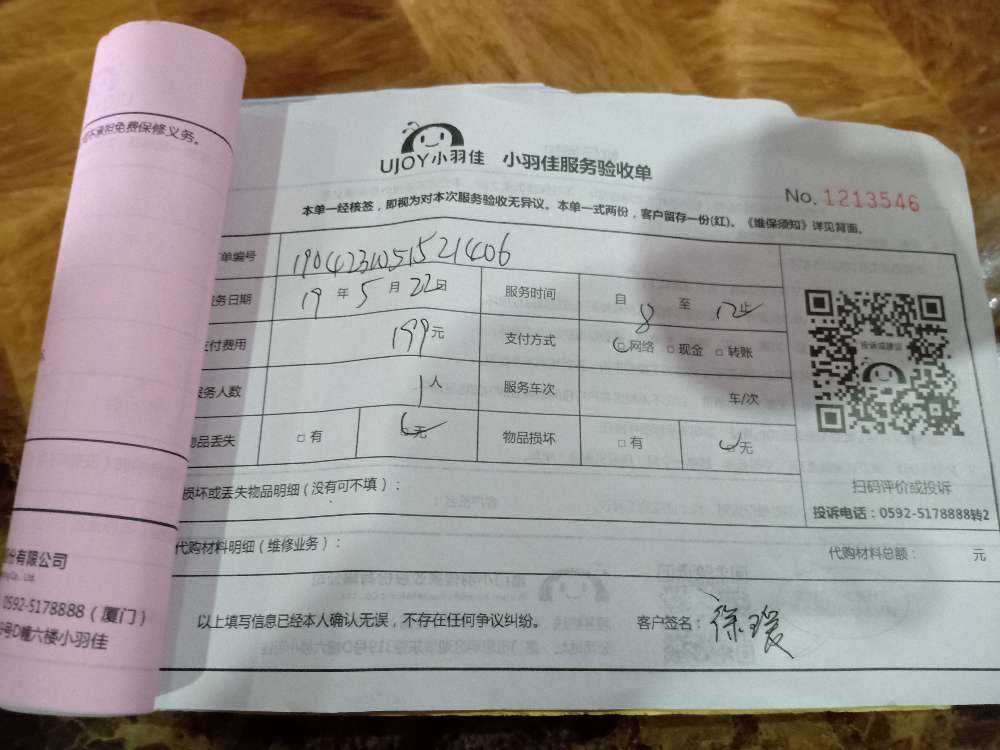 不承担免费保修义务。
UJOY小羽佳 小羽佳服务验收单
No. 1213546
本单一经核签，即视为对本次服务验收无异议。本单一式两份，客户留存一份(红)。《维保须知》详见背面。
单编号
务日期 19 年 5 月 22 日 服务时间 自 8 至 12 止
付费用 199 元 支付方式 □网络 □现金 □转账
务人数 1 人 服务车次 车/次
物品丢失 □有 □无 物品损坏 □有 □无
投诉或建议
扫码评价或投诉
投诉电话：0592-5178888转2
损坏或丢失物品明细（没有可不填）：
代购材料明细（维修业务）： 代购材料总额： 元
以上填写信息已经本人确认无误，不存在任何争议纠纷。 客户签名： 徐瑷
份有限公司
Co., Ltd.
0592-5178888（厦门）
9号D幢六楼小羽佳